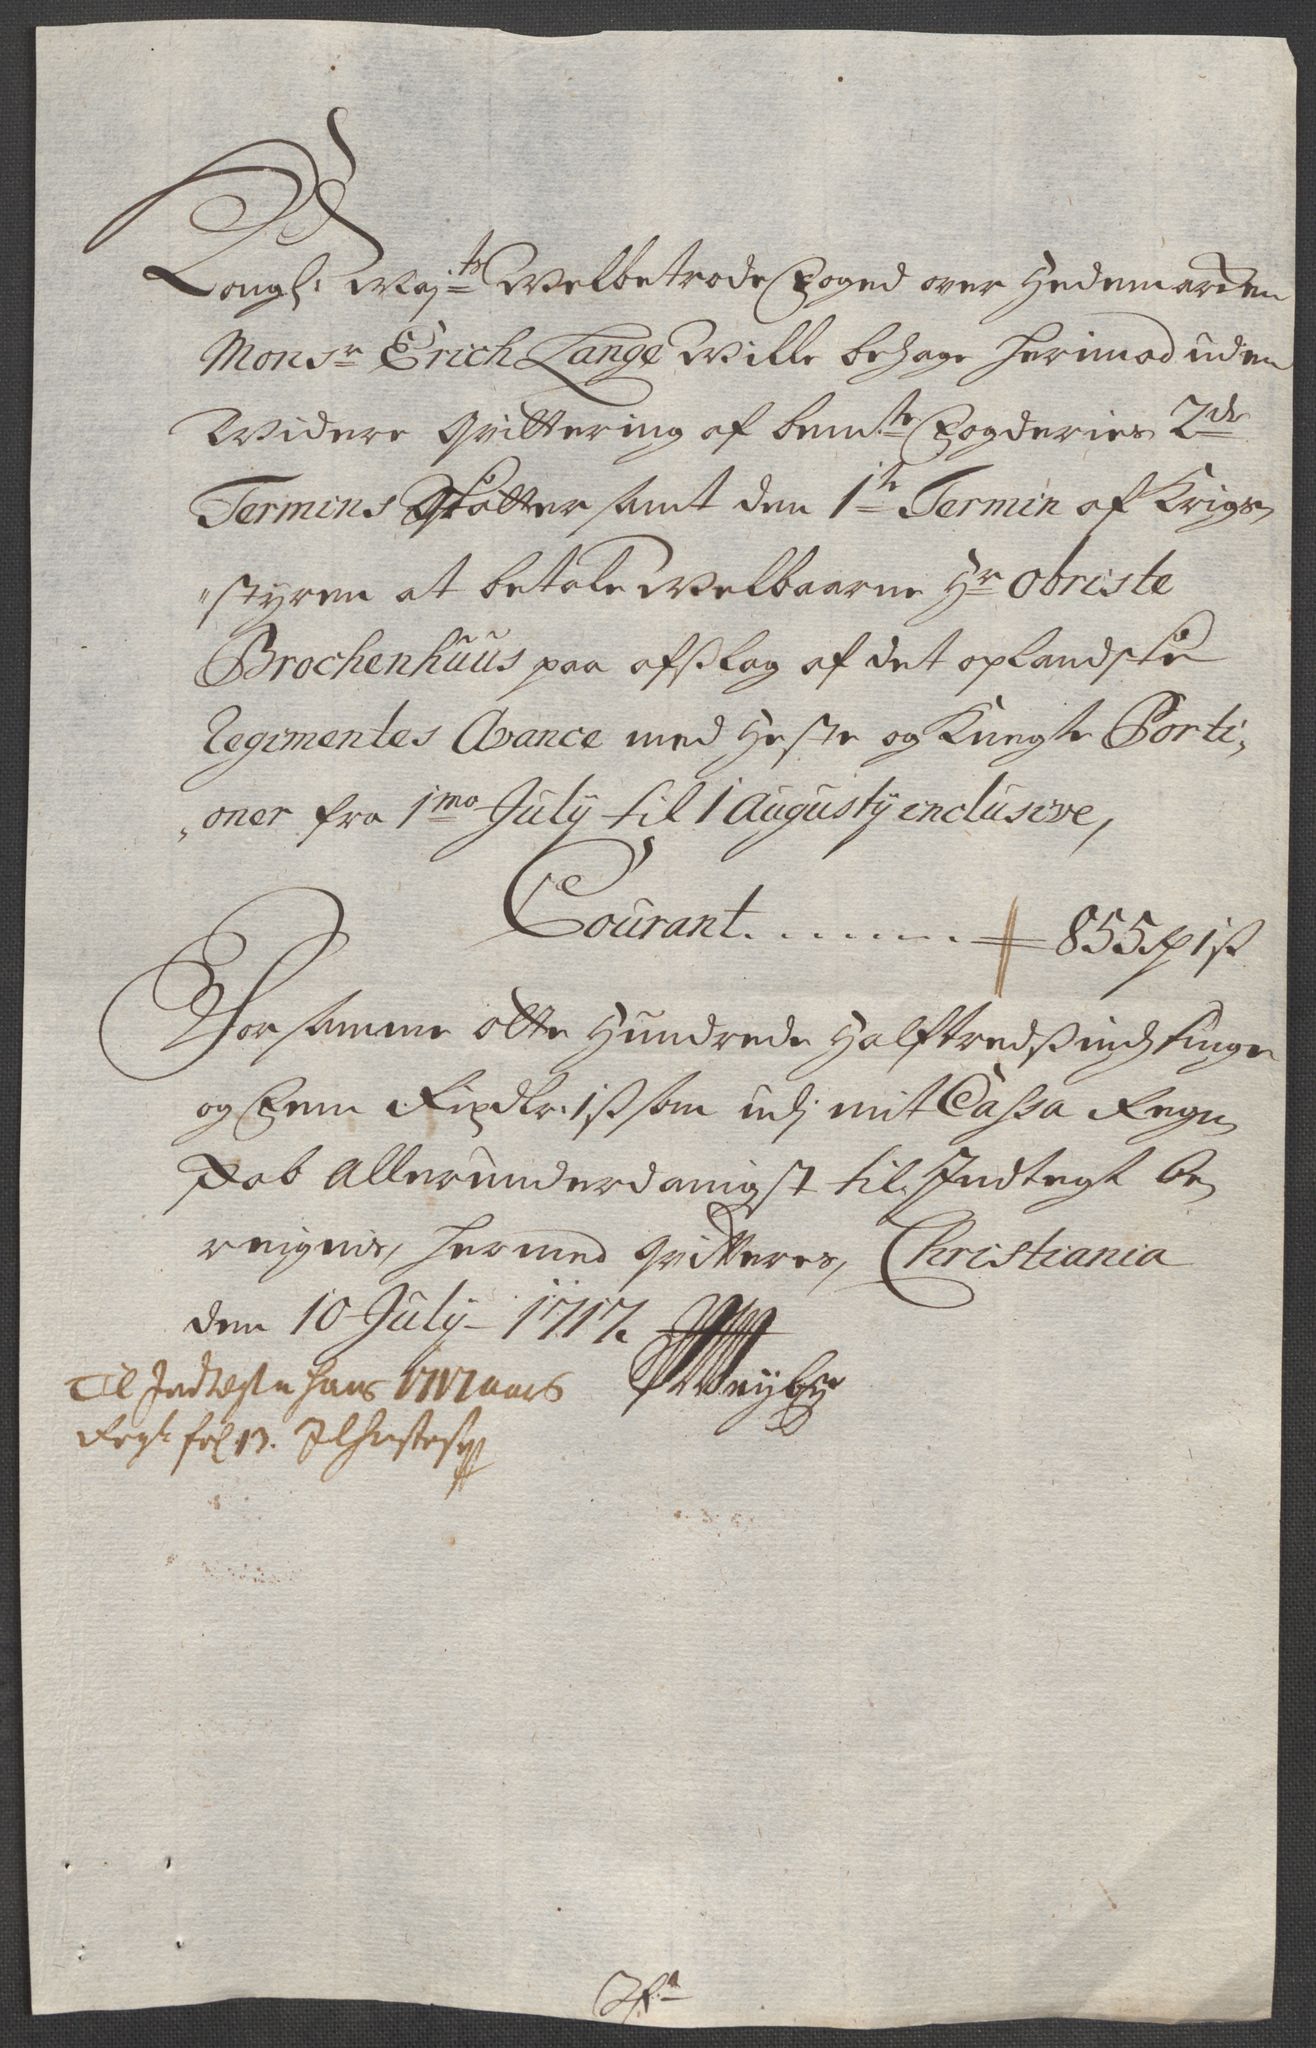 Kongl: Maj:ts Welbetrode Foged over Hedemarcken
Monsr Erich Lange Wille behage herimod uden
Widere Qvittering af bemte Fogderies 2de
Termins Skatter samt den 1te Termin af Krigs
"styren at betale Welbaarne Hr Obriste
Brochenhuus paa afslag af det oplandske
Regimentes Avance med Heste og Knegte Porti„
„oner fra 1mo July til 1 Augusty inclusive,
Courant . . . . . . . . 855 1 ß
For samme otte Hundrede Halftredßindstinge
og Fem Rixdlr. 1 ß som udj mit Cassa Regn
skab Allerunderdanigst til Indtegt be
reignis, hermed Qvitteres, Christiania
den 10 July 1717.
Til Indtegt i hans 1717 aars
Regsk fol 13.